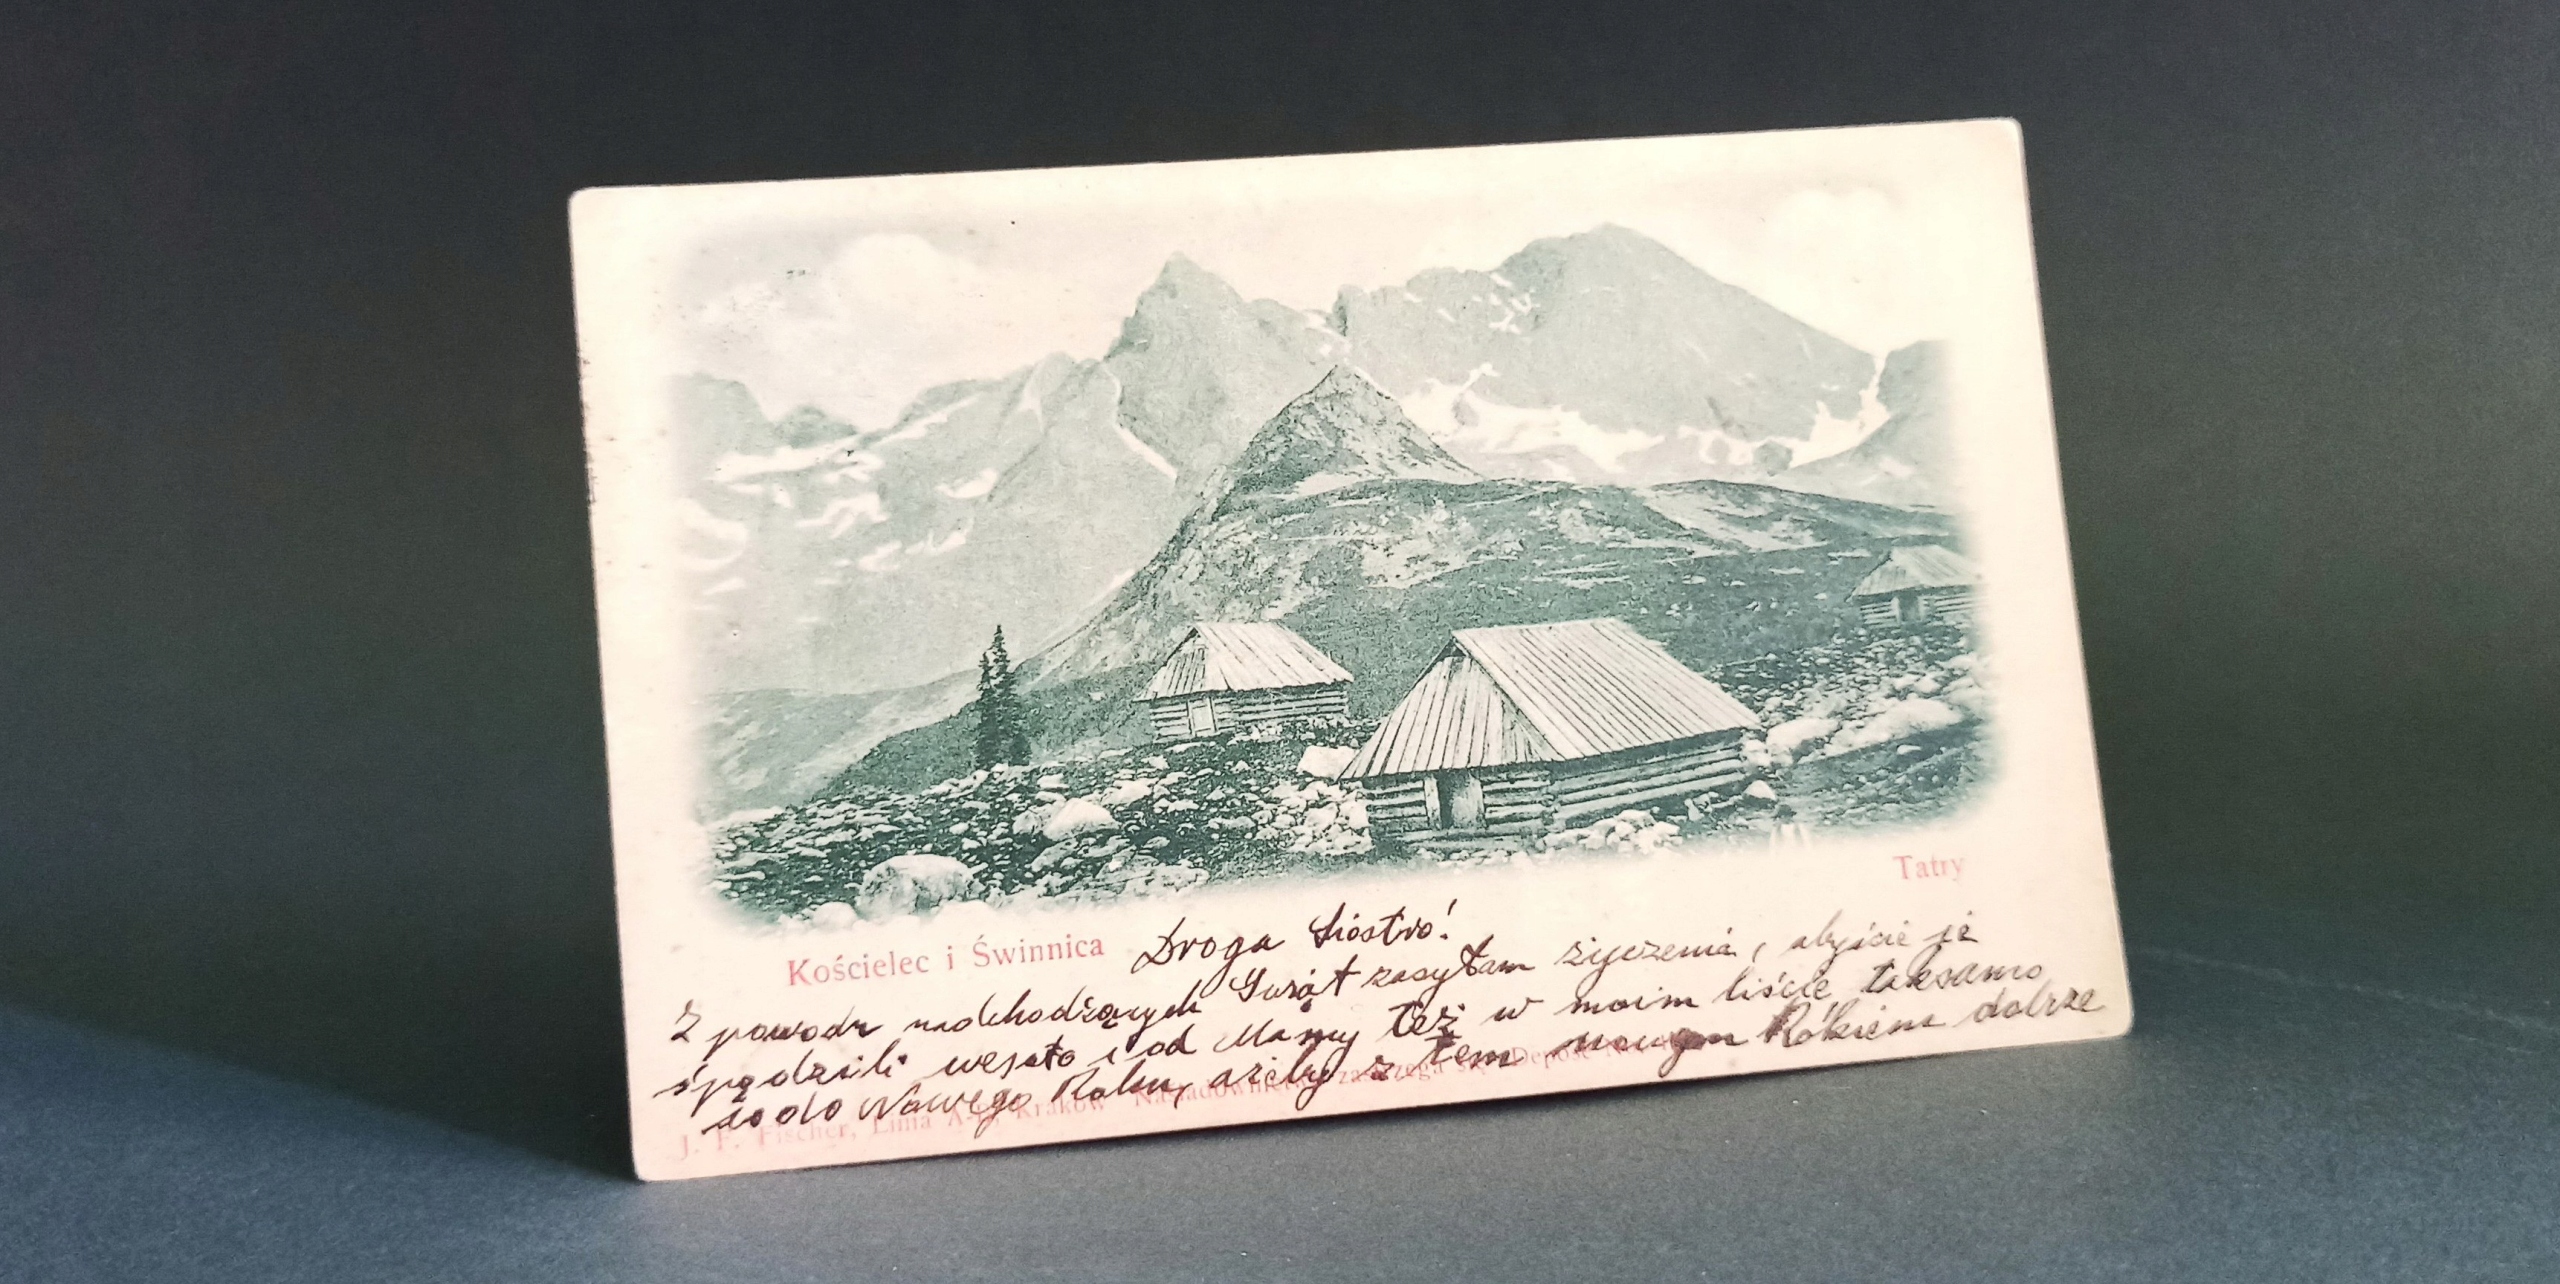 Tatry
Kościelec i Świnnica
Droga Siostro!
Z powodu nadchodzących Świąt zasyłam życzenia, abyście je
spędzili wesoło i od Mamy też w moim liście taksamo
do Nowego Roku, ażeby z tem nowym Rokiem dobrze
J. F. Fischer, Linia A-B, Kraków Naśladownictwo zastrzega się Depose